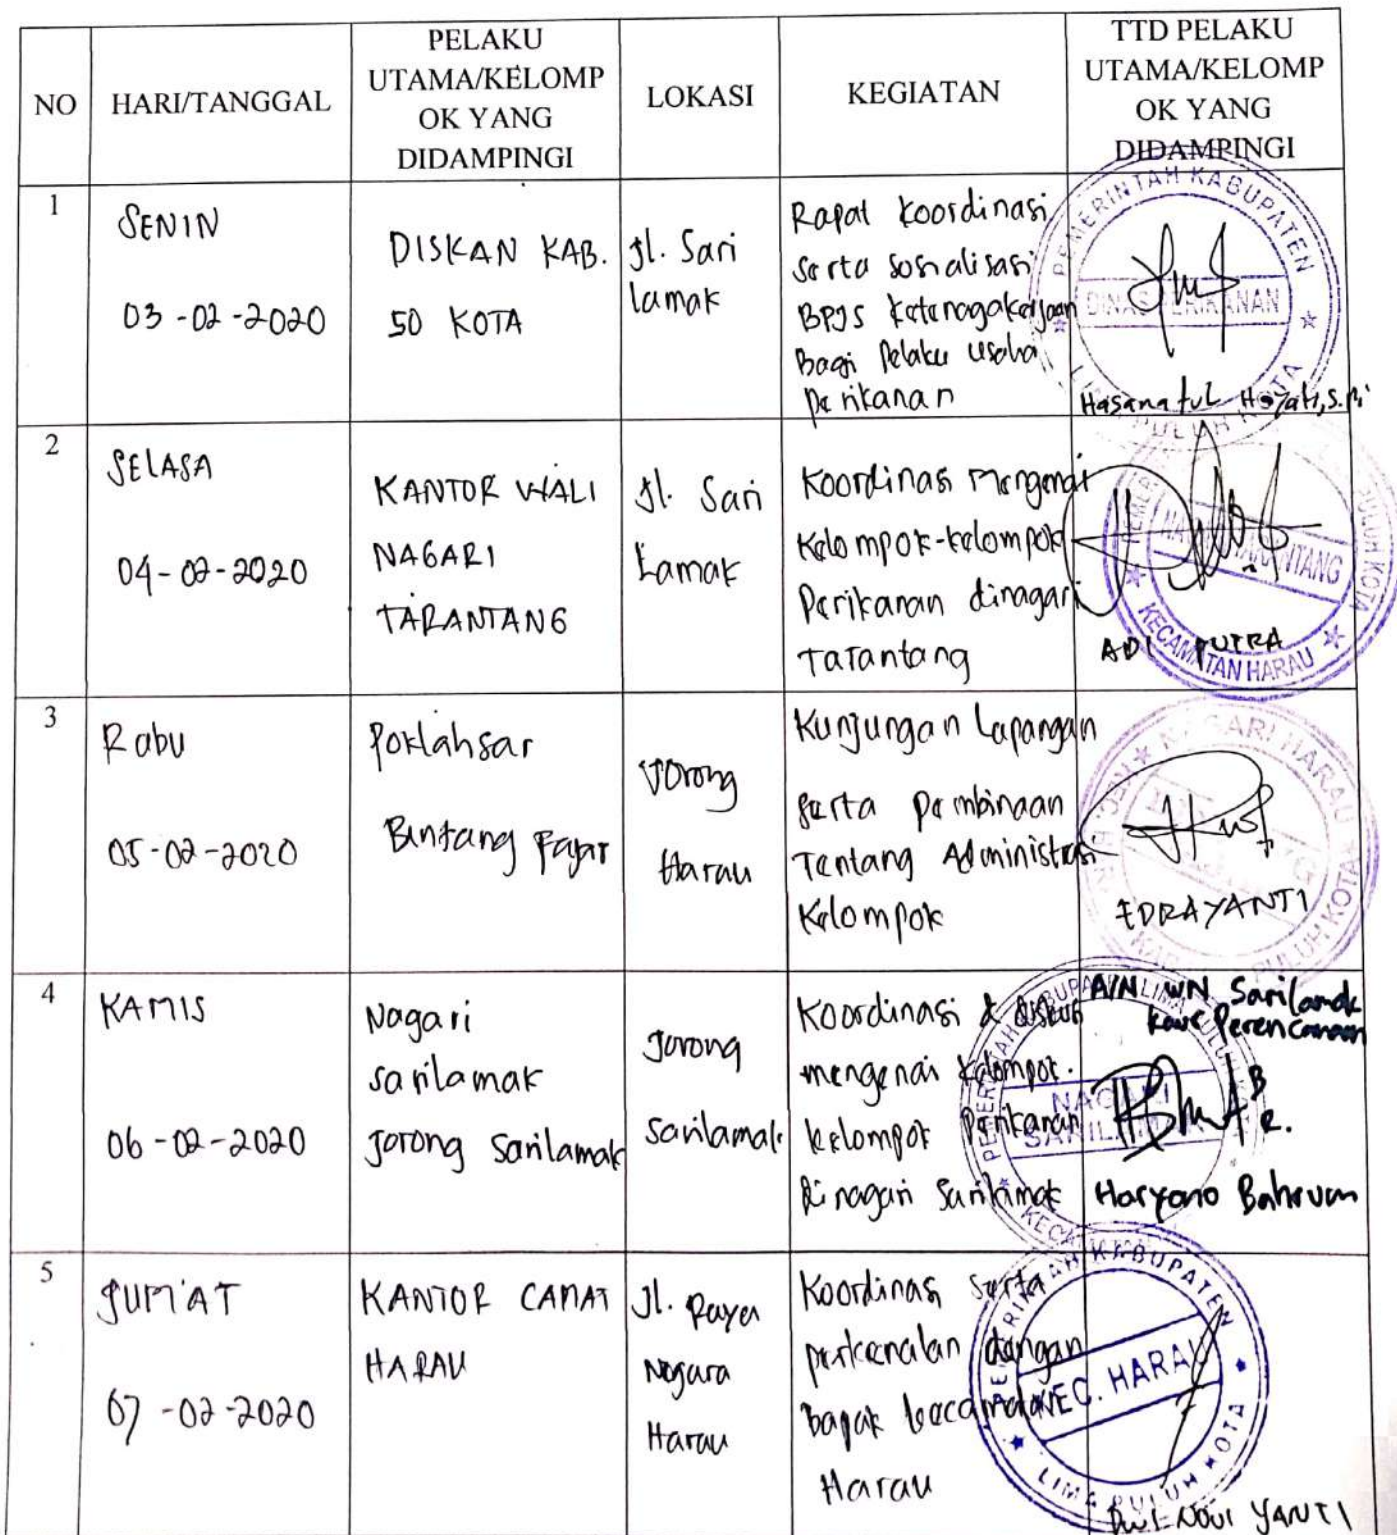 NO
HARI/TANGGAL
PELAKU
UTAMA/KELOMP
OK YANG
DIDAMPINGI
LOKASI
KEGIATAN
TTD PELAKU
UTAMA/KELOMP
OK YANG
DIDAMPINGI
1
SENIN
03-02-2020
DISKAN KAB.
50 KOTA
Jl. Sari
lamak
Rapat koordinasi
serta sosialisasi
BPJS Ketenagakerjaan
Bagi Pelaku usaha
perikanan
PEMERINTAH KABUPATEN
DINAS PERIKANAN
LIMA PULUH KOTA
Hasanatul Hayati, S.Pi
2
SELASA
04-02-2020
KANTOR WALI
NAGARI
TARANTANG
Jl. Sari
Lamak
Koordinasi Mengenai
Kelompok-kelompok
Perikanan dinagari
Tarantang
KECAMATAN HARAU
ADI PUTRA
3
Rabu
05-02-2020
Poklahsar
Bintang Fajar
Jorong
Harau
Kunjungan Lapangan
serta pembinaan
Tentang Administrasi
Kelompok
NAGARI HARAU
EDRAYANTI
4
KAMIS
06-02-2020
Nagari
sarilamak
Jorong Sarilamak
Jorong
Sarilamak
Koordinasi & diskusi
mengenai kelompok-
kelompok perikanan
di nagari Sarilamak
NAGARI
SARILAMAK
A/N WN Sarilamak
Kaur Perencanaan
Haryono Bahrum
5
JUM'AT
07-02-2020
KANTOR CAMAT
HARAU
Jl. Raya
Negara
Harau
Koordinasi serta
perkenalan dengan
bapak
Harau
PEMERINTAH KABUPATEN
KEC. HARAU
LIMA PULUH KOTA
NOVI YANTI